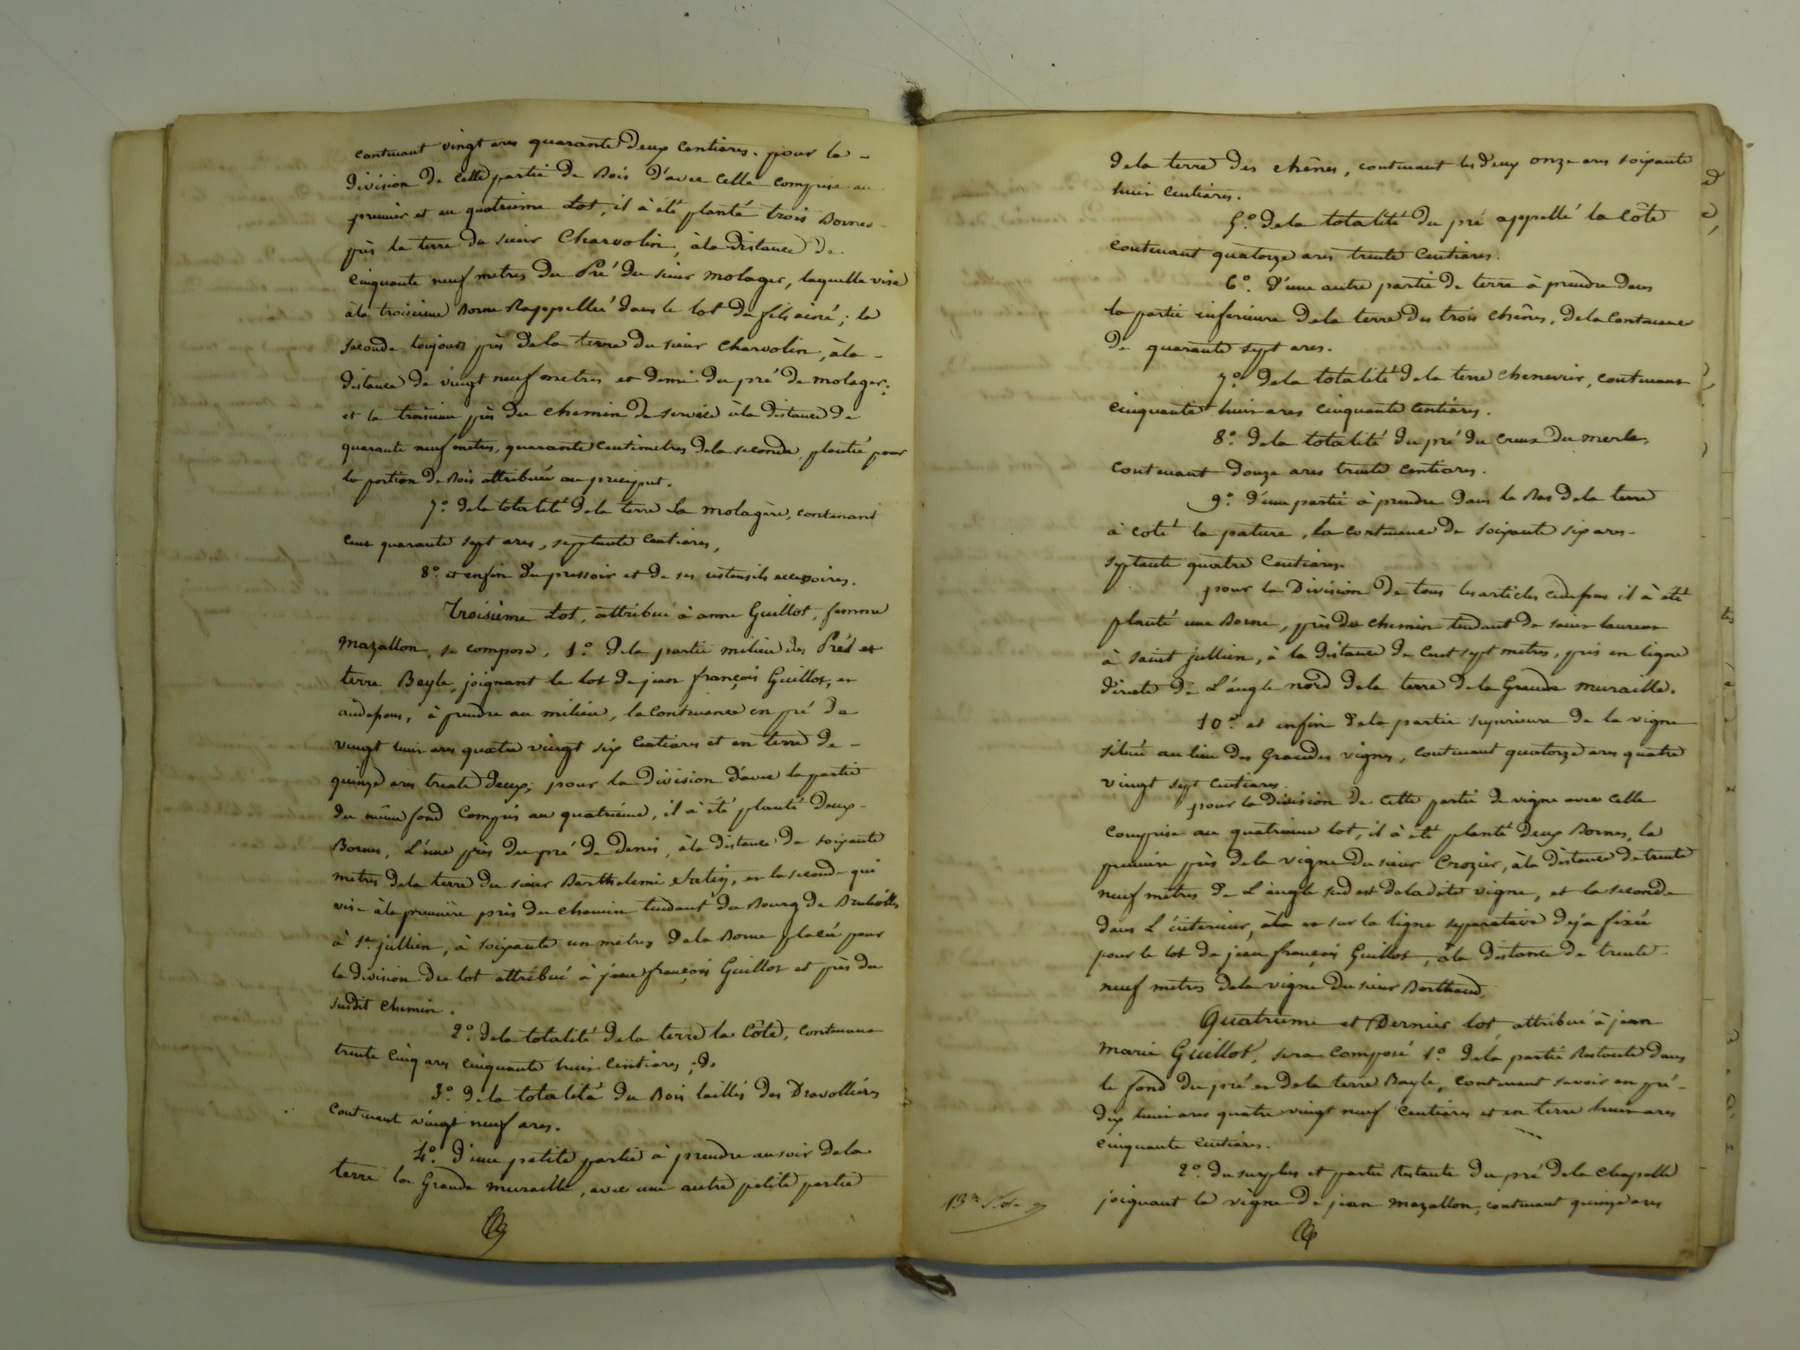 contenant vingt ares quarante deux Centiares. pour la -
division de cette partie de Bois d'avec celle comprise au
premier et au quatrieme Lot, il à été planté trois Bornes
près la terre du sieur Charvolin, à la distance de
Cinquante neuf metres du Pré du sieur molager, laquelle vise
à la troisieme Borne Rappellée dans le lot du fils ainé; la
seconde toujours près de la terre du sieur charvolin, à la -
distance de vingt neuf metres et demi du pré de molager;
et la troisieme près du chemin de service à la distance de
quarante neuf metres, quarante centimetres de la seconde, plantée pour
la portion de Bois attribuée au préciput.
7.° de la totalité de la terre La molagère, contenant
Cent quarante sept ares, septante Centiares,
8.° et enfin du pressoir et de ses ustensils accessoires.
Troisième Lot, attribué à anne Guillot, femme
Mazallon, se compose, 1.° de la partie milieu des Prés et
terre Bayle, joignant le lot de jean françois Guillot, et
audessus, à prendre au milieu, la contenance en pré de
vingt huit ares quatre vingt six Centiares et en terre de -
quinze ares trente deux; pour la division d'avec la partie
du même fond Compris au quatrieme, il à été planté deux -
Bornes, L'une près du pré de Denis, à la distance de soixante
metres de la terre du sieur Barthelemi, et la seconde qui
vise à la première près du chemin tendant du Bourg de Brulioles
à St. jullien, à soixante un metres de la Borne placée pour
la division du lot attribué à jean françois Guillot et près du
susdit chemin.
2.° de la totalité de la terre la Côte, contenant
trente cinq ares cinquante huit Centiares;
3.° de la totalité du Bois taillis des Dravollières
Contenant vingt neuf ares.
4.° d'une petite partie à prendre au soir de la
terre la Grande muraille, avec une autre petite partie
de la terre des chênes, contenant les deux onze ares soixante
huit Centiares.
5.° de la totalité du pré appellé la Côte
contenant quatorze ares trente Centiares.
6.° d'une autre partie de terre à prendre dans
la partie inferieure de la terre des trois chênes, de la Contenance
de quarante sept ares.
7.° de la totalité de la terre chenevier, contenant
cinquante huit ares cinquante Centiares.
8.° de la totalité du pré du creux du merle,
contenant douze ares trente Centiares.
9.° d'une partie à prendre dans le Bas de la terre
à coté la pature, la contenance de soixante six ares -
septante quatre Centiares.
pour la Division de tous les articles cidessus il à été
planté une Borne, près du chemin tendant de saint laurent
à saint jullien, à la distance de Cent sept metres, pris en ligne
directe de L'angle nord de la terre de la Grande muraille.
10.° et enfin de la partie superieure de la vigne
située au lieu des Grandes vignes, contenant quatorze ares quatre
vingt sept Centiares.
pour la Division de cette partie de vigne avec celle
comprise au quatrieme lot, il à été planté deux Bornes, la
première près de la vigne du sieur Crozier, à la distance de trente
neuf metres de L'angle sud est de la dite vigne, et la seconde
dans L'interieur, à la et sur la ligne separative déja fixée
pour le lot de jean françois Guillot, à la distance de trente
neuf metres de la vigne du sieur Berthaud.
Quatrieme et Dernier lot, attribué à jean
marie Guillot, sera composé 1.° de la partie Restante dans
le fond du pré et de la terre Bayle, contenant savoir en pré -
dix huit ares quatre vingt neuf Centiares et en terre huit ares
cinquante Centiares.
2.° du surplus et partie Restante du pré de la chapelle
joignant la vigne de jean mazallon, contenant quinze ares